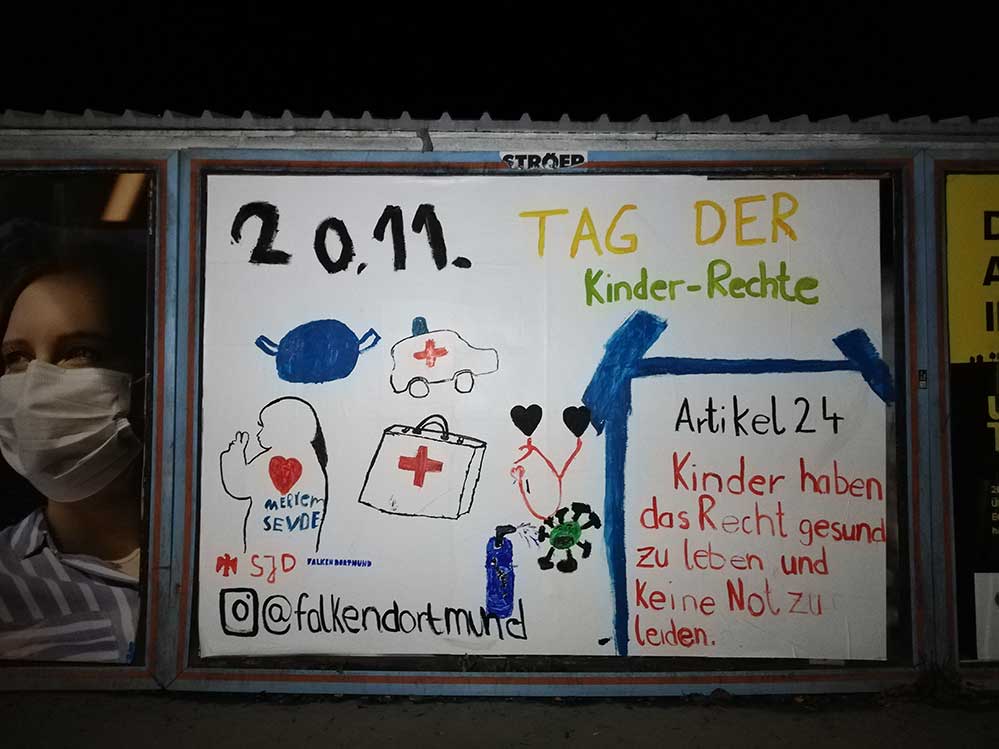 STRÖER
20.11.
TAG DER
Kinder-Rechte
Artikel 24
Kinder haben
das Recht gesund
zu leben und
keine Not zu
leiden.
MERYEM
SEVDE
SJD FALKEN DORTMUND
@falkendortmund